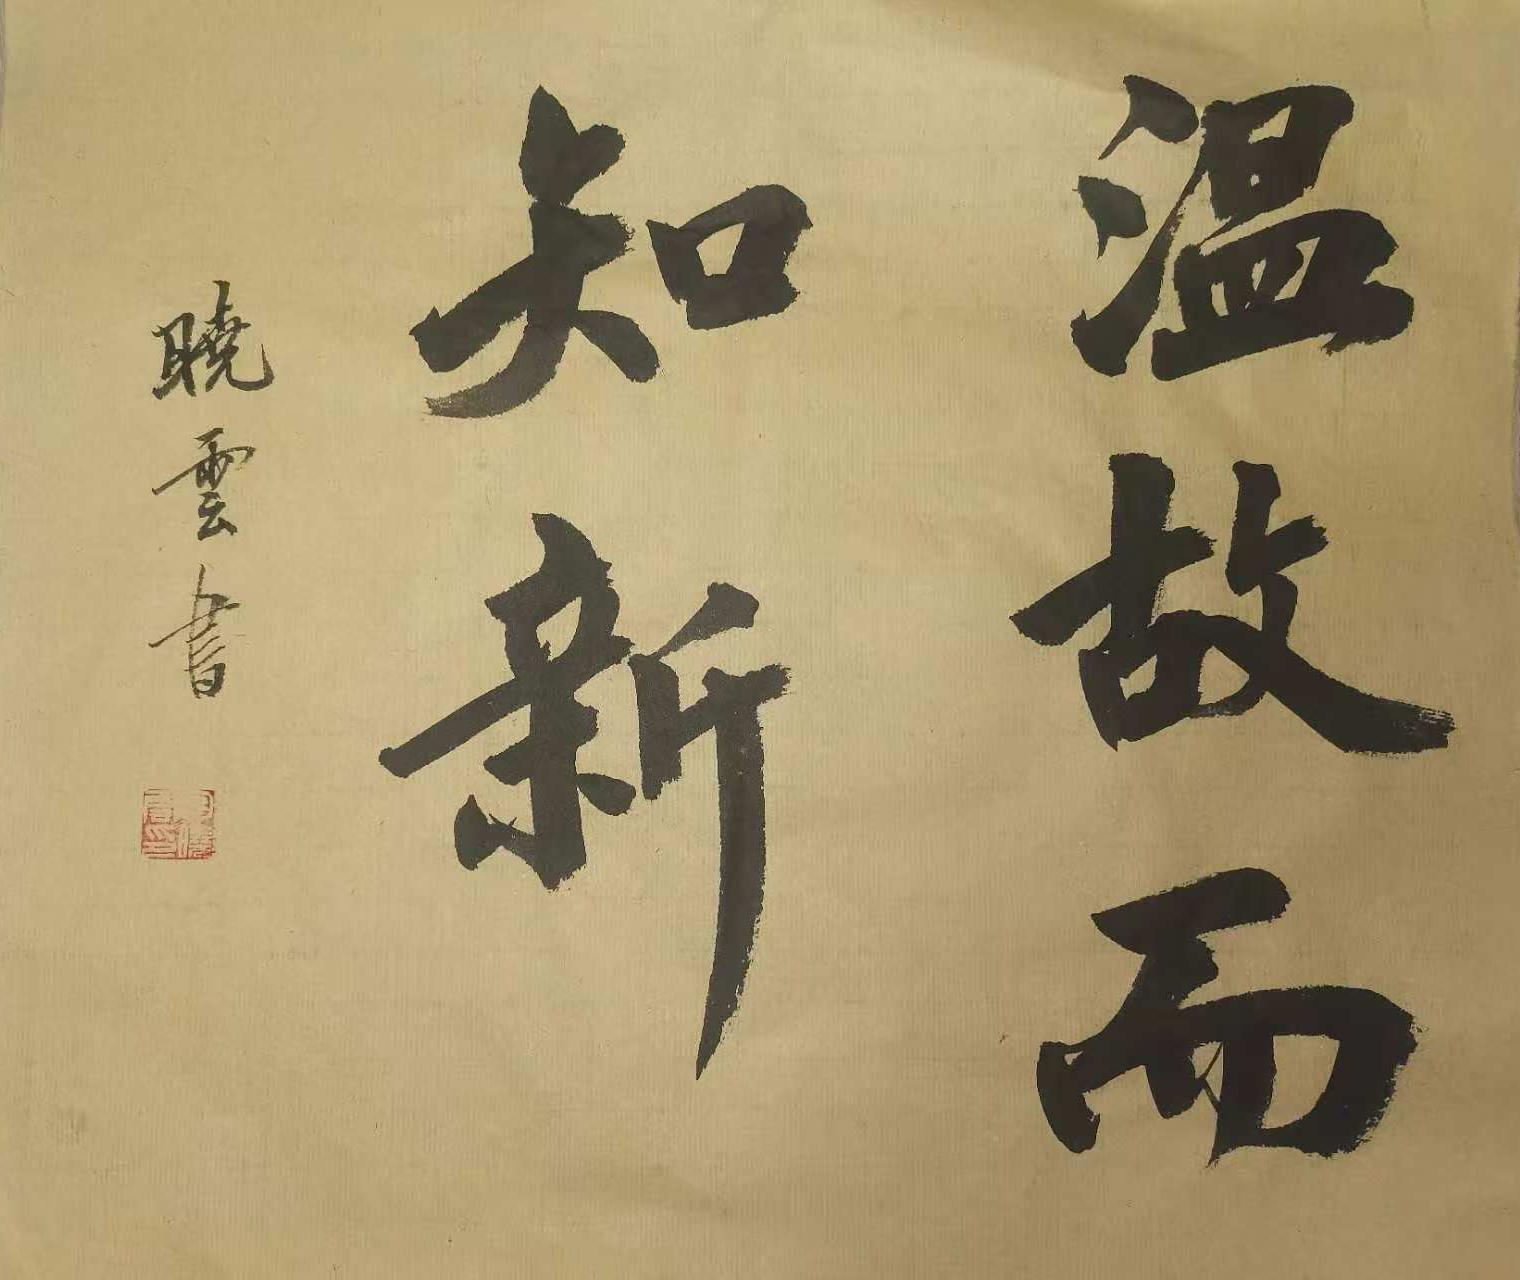 温故而
知新
曉雲書